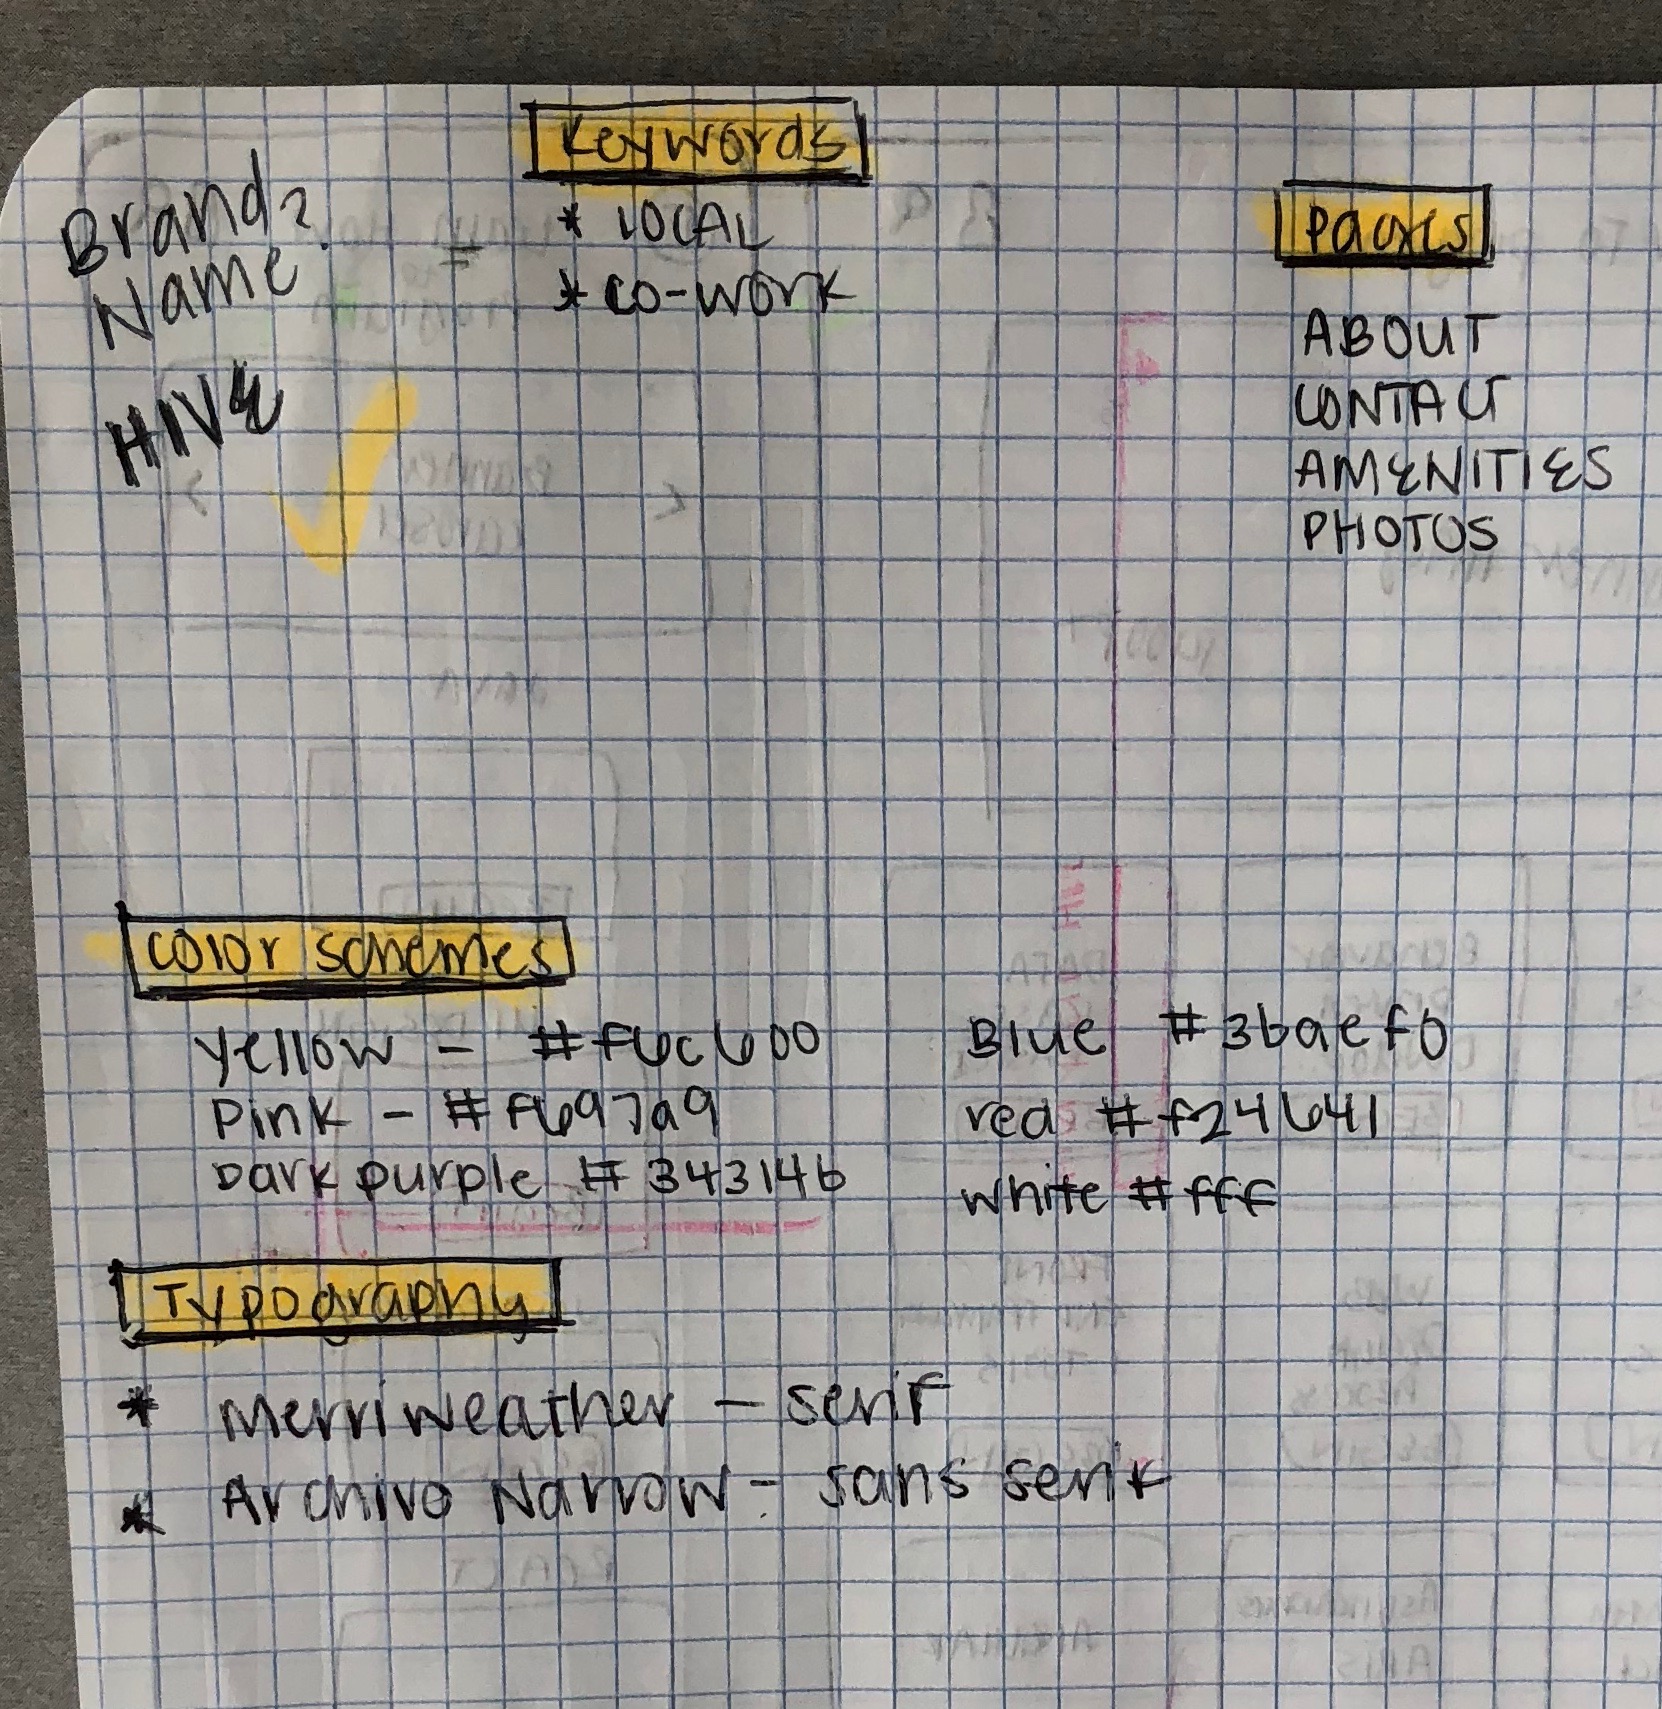 Keywords
Brand?
Name
=
* LOCAL
* CO-WORK
HIVE
Pages
ABOUT
CONTACT
AMENITIES
PHOTOS
Color schemes
Yellow - #f6c600
Pink - #f697a9
Dark purple #34314b
Blue #3baef0
red #f24641
white #fff
Typography
* Merriweather - serif
* Archivo Narrow - sans serif